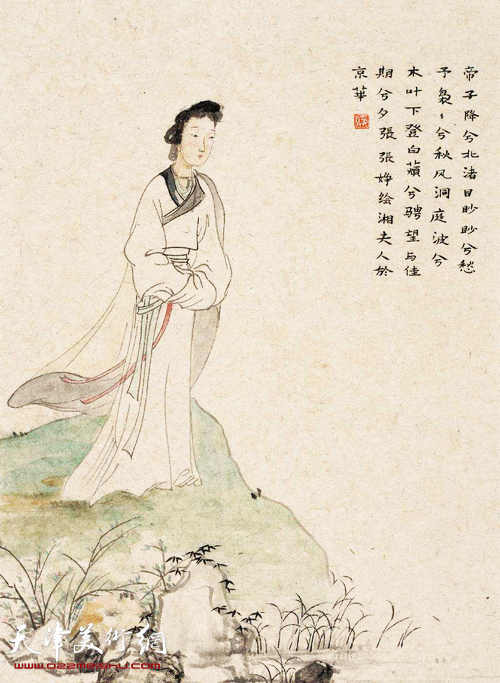 帝子降兮北渚目眇眇兮愁
予袅々兮秋风洞庭波兮
木叶下登白薠兮骋望与佳
期兮夕張張绘湘夫人於
京華
天津美術網
www.022meishu.com